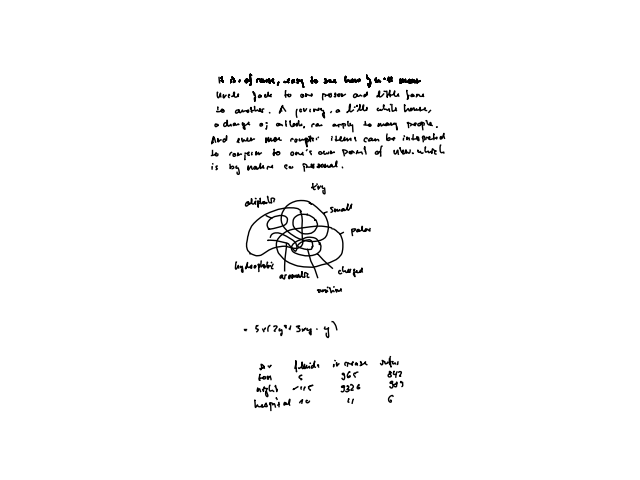 It is, of course, easy to see how
Uncle Jack to one person and little Jane
to another. A journey, a little white house,
a change of, can apply to many people.
And even more complex items can be interpreted
to conform to one's own point of view, which
is by nature so personal.
tiny
aliphatic
small
polar
hydrophobic
aromatic
charged
positive
5x(2y² + 3xy - y)
fluids increase
ton 5 965 842
night 9326
hospital 10 11 6